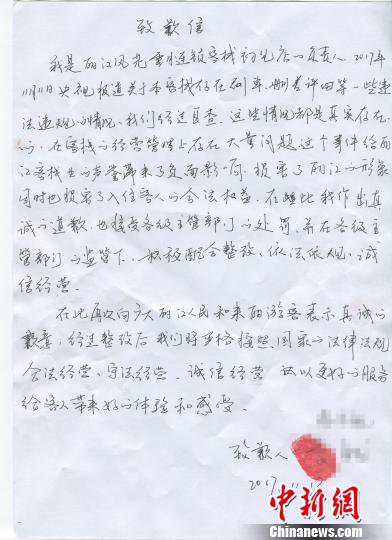 致歉信
我是丽江风花雪月连锁客栈初见店一负责人 2017年
11月11日央视报道关于本客栈存在刷单、删差评的等一些违
法违规的情况、我们经过自查、这些情况都是真实存在
的，在客栈的经营管理上存在大量问题这个事件给丽
江客栈的声誉带来了负面影响，损害了丽江的形象
同时也损害了入住客人的合法权益，在此我作出真
诚的道歉，也接受各级主管部门的处罚、并在各级主
管部门的监管下、积极配合整改、依法依规、诚
信经营。
在此再次向广大丽江人民和来丽游客表示真诚的
歉意，经过整改后我们将严格按照国家的法律法规
合法经营、守法经营、诚信经营 并以更好的服务
给客人带来好的体验和感受。
致歉人
2017.11.12
中新网
www.chinanews.com